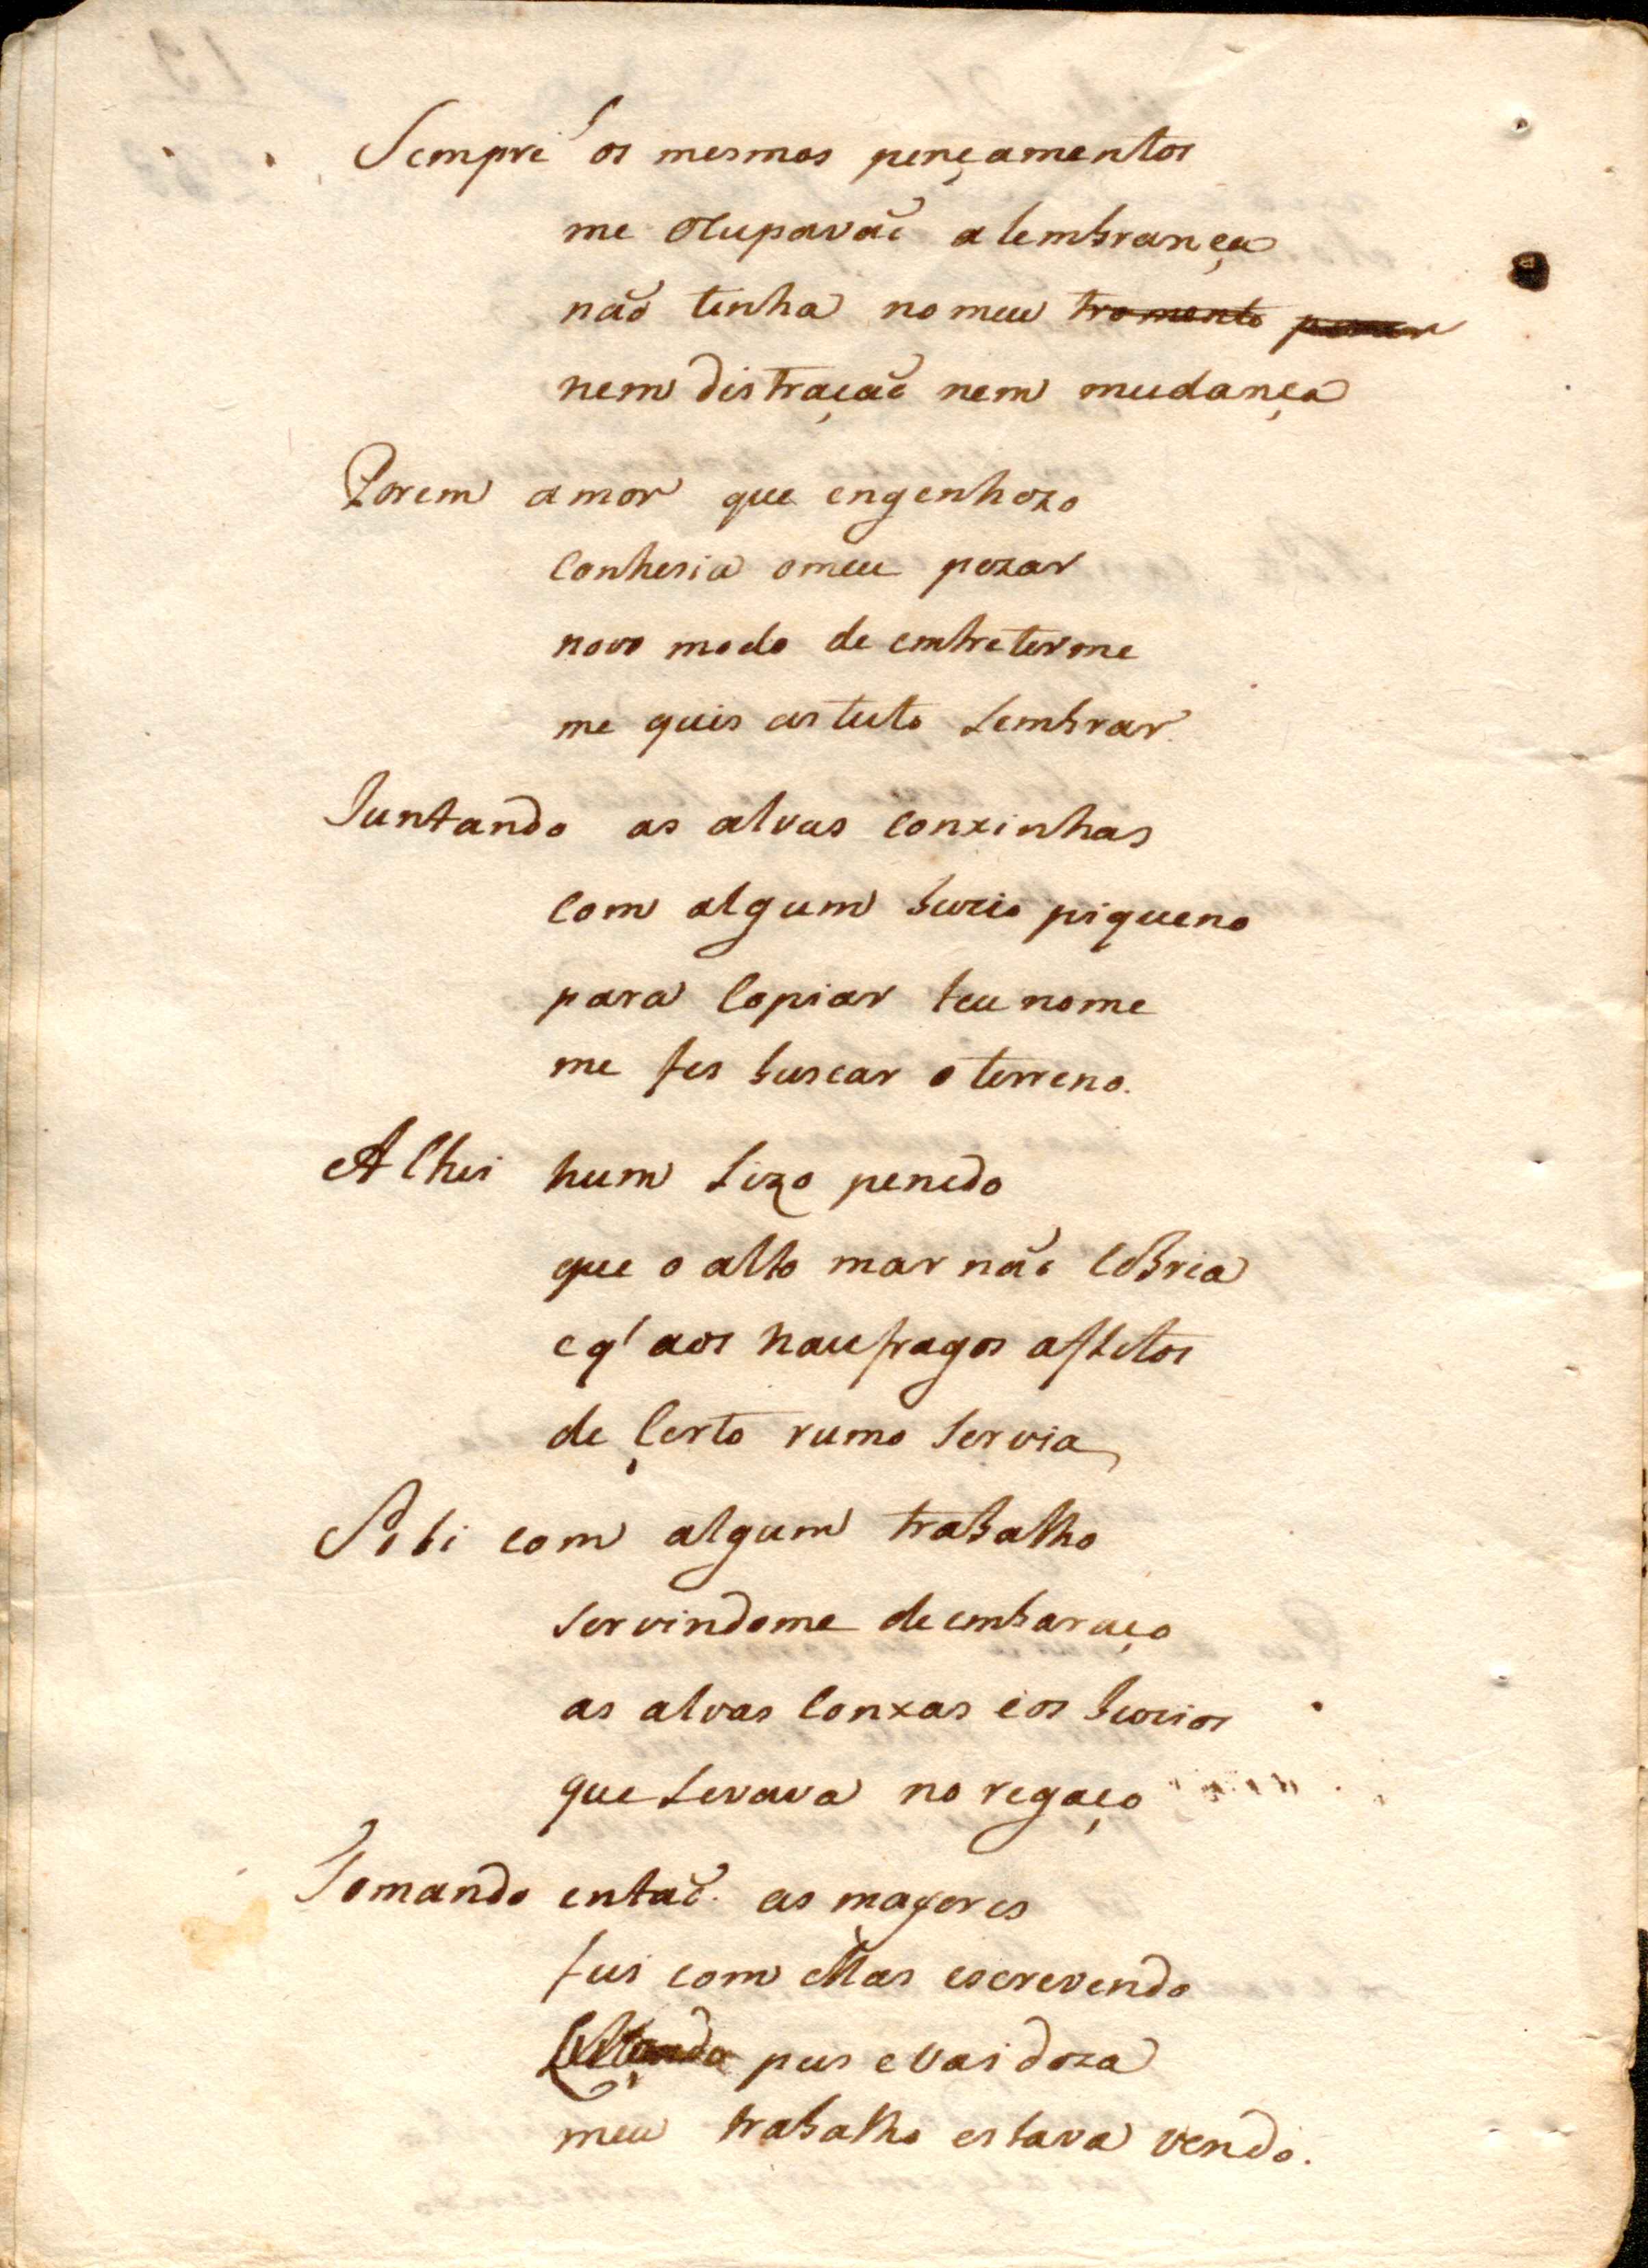 Sempre os mesmos pençamentos
me ocupavaõ a lembrança
naõ tinha no meu tromento
nem distraçaõ nem mudança
Porem amor que engenhozo
conhesia o meu pezar
novo modo de entreterme
me quis astuto lembrar
Juntando as alvas conxinhas
com algum buzio piqueno
para copiar teu nome
me fes buscar o terreno.
Alhei hum lizo penedo
que o alto mar naõ cobria
e q' aos naufragos aflitos
de çerto rumo servia
Sobi com algum trabalho
servindome de embaraço
as alvas conxas e os buzios
que levava no regaço
Tomando entaõ as mayores
fui com ellas escrevendo
pus e vaidoza
meu trabalho estava vendo.